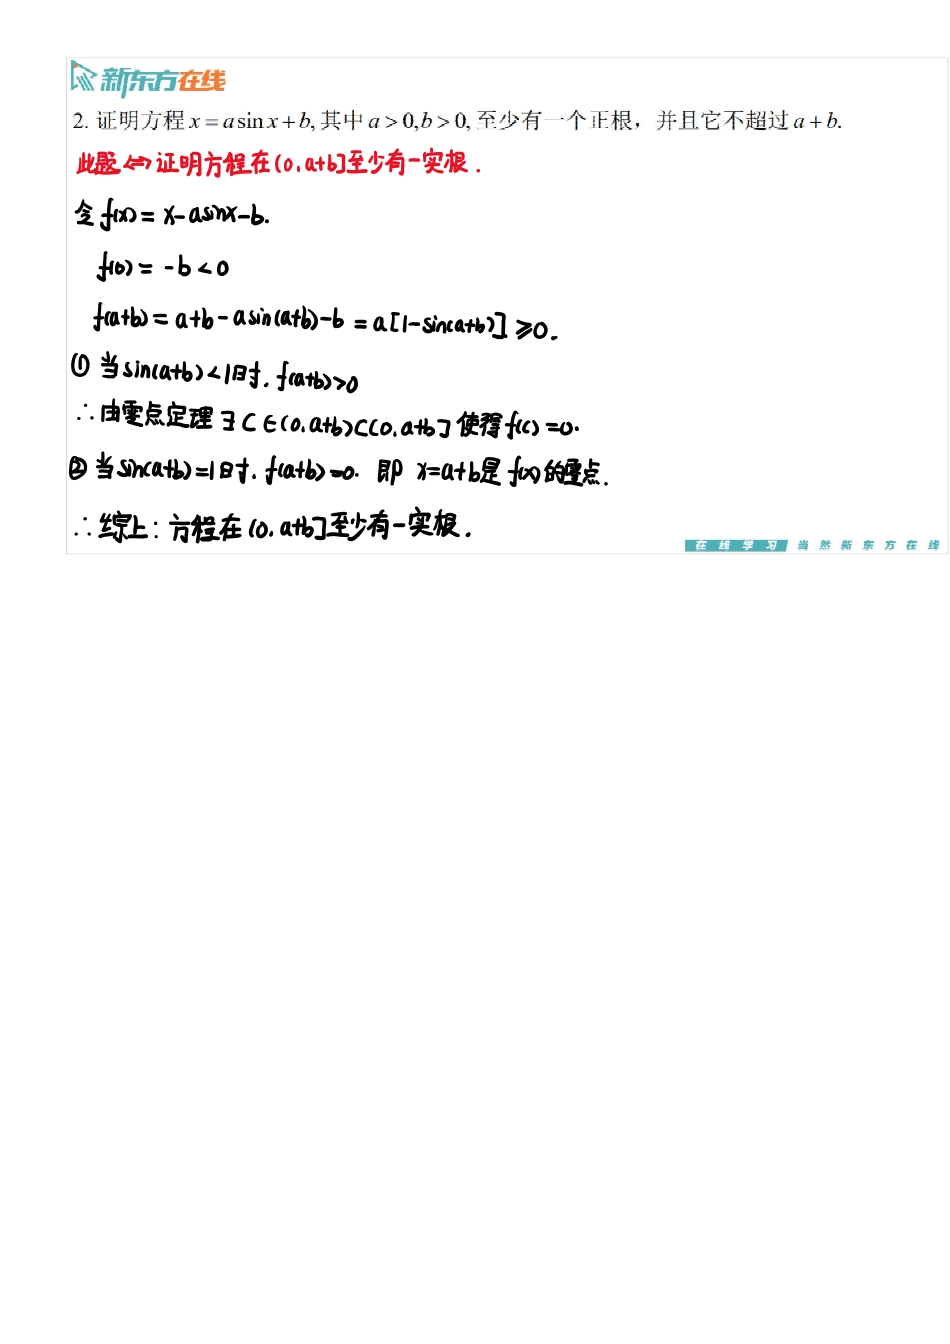 新东方在线
2. 证明方程 x = a sin x + b, 其中 a > 0, b > 0, 至少有一个正根，并且它不超过 a + b.
此题⇔证明方程在(0,a+b]至少有一实根.
令f(x)= x-asinx-b.
f(0)= -b<0
f(a+b)= a+b-asin(a+b)-b = a[1-sin(a+b)] ≥0.
① 当sin(a+b)<1时, f(a+b)>0
∴由零点定理 ∃ C∈(0,a+b)⊂(0,a+b] 使得f(c)=0.
② 当sin(a+b)=1时, f(a+b)=0. 即 x=a+b是f(x)的零点.
∴综上: 方程在(0,a+b]至少有一实根.
在线学习 当然新东方在线